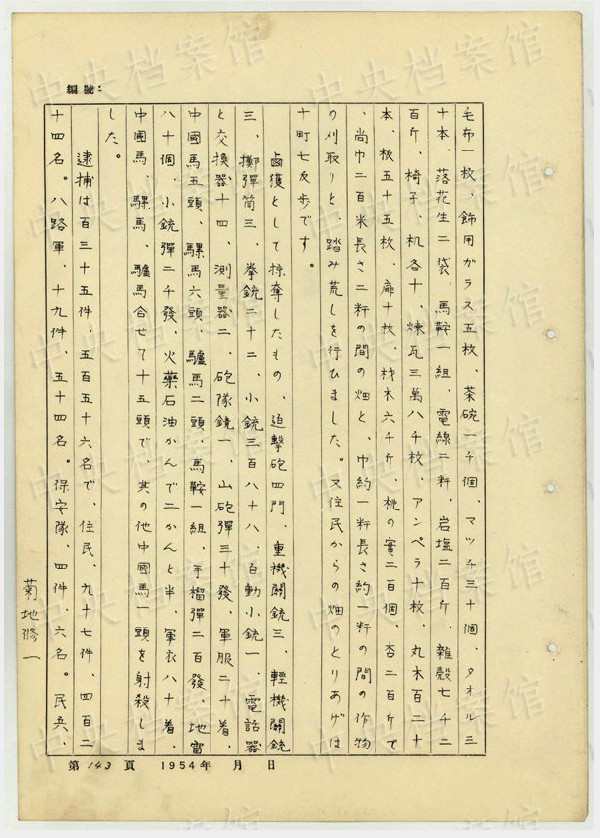 編號：
毛布一枚、飾用ガラス五枚、茶碗一千個、マッチ三十個、タオル三
十本、落花生二袋、馬鞍一組、電線二粁、岩塩二百斤、雑穀七千二
百斤、椅子、机各十、煉瓦三萬八千枚、アンペラ十枚、丸木百二十
本、板五十五枚、扉十枚、材木六千斤、桃の實二百個、杏二百斤で
、尚巾二百米長さ二粁の間の畑と、巾約一粁長さ約一粁の間の作物
の刈取りと、踏み荒しを行ひました。又住民からの畑のとりあげは
十町七反歩です。
鹵獲として掠奪したもの、迫撃砲四門、重機關銃三、輕機關銃
三、擲彈筒三、拳銃二十二、小銃三百八十八、自動小銃一、電話器
と交換器十四、測量器二、砲隊鏡一、山砲彈三十發、軍服二十着、
中國馬五頭、騾馬六頭、驢馬二頭、馬鞍一組、手榴彈二百發、地雷
八十個、小銃彈二千發、火藥石油かんで二かんと半、軍衣八十着、
中國馬、騾馬、驢馬合せて十五頭で、其の他中國馬一頭を射殺しま
した。
逮捕は百三十五件、五百五十六名で、住民、九十七件、四百二
十四名。八路軍、十九件、五十四名。保安隊、四件、六名。民兵、
菊地修一
第143頁 1954年 月 日
中央档案馆
中央档案馆
中央档案馆
中央档案馆
中央档案馆
中央档案馆